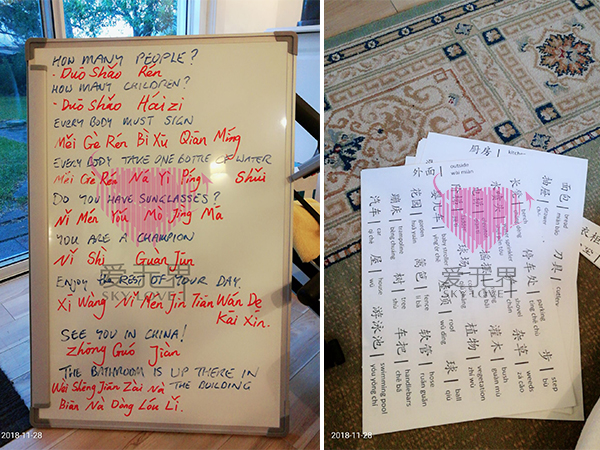 HOW MANY PEOPLE?
- Duō Shǎo Rén
HOW MANY CHILDREN?
- Duō Shǎo Háizi
EVERY BODY MUST SIGN
Měi Gè Rén Bì Xū Qiān Míng
EVERY BODY TAKE ONE BOTTLE OF WATER
Měi Gè Rén Ná Yī Píng Shuǐ
DO YOU HAVE SUNGLASSES?
Nǐ Mén Yǒu Mò Jìng Mā
YOU ARE A CHAMPION
Nǐ Shì Guàn Jūn
ENJOY REST OF YOUR DAY
Xī Wàng Nǐ Mén Jīn Tiān Wán Dé
Kāi Xīn.
SEE YOU IN CHINA!
Zhōng Guó Jiàn
THE BATHROOM IS UP THERE IN
THE BUILDING
Wèi Shēng Jiān Zài Nà
Biān Nà Dòng Lóu Lǐ.
2018-11-28
厨房 kitchen
outside
wài miàn
面包 bread
miàn bāo
抽屉 drawer
长凳 bench
花园 garden
huā yuán
蹦床 trampoline
bèng chuáng
汽车 car
qì chē
刀具 cutlery
停车处 parking
tíng chē chù
篱笆 fence
lí bā
树 tree
shù
屋 house
wū
步 step
bù
杂草 weeds
zá cǎo
灌木 bush
guàn mù
植物 vegetation
zhí wù
roof
wū dǐng
球 ball
qiú
软管 hose
ruǎn guǎn
车把 handlebars
chē bǎ
游泳池 swimming pool
yóu yǒng chí
2018-11-28